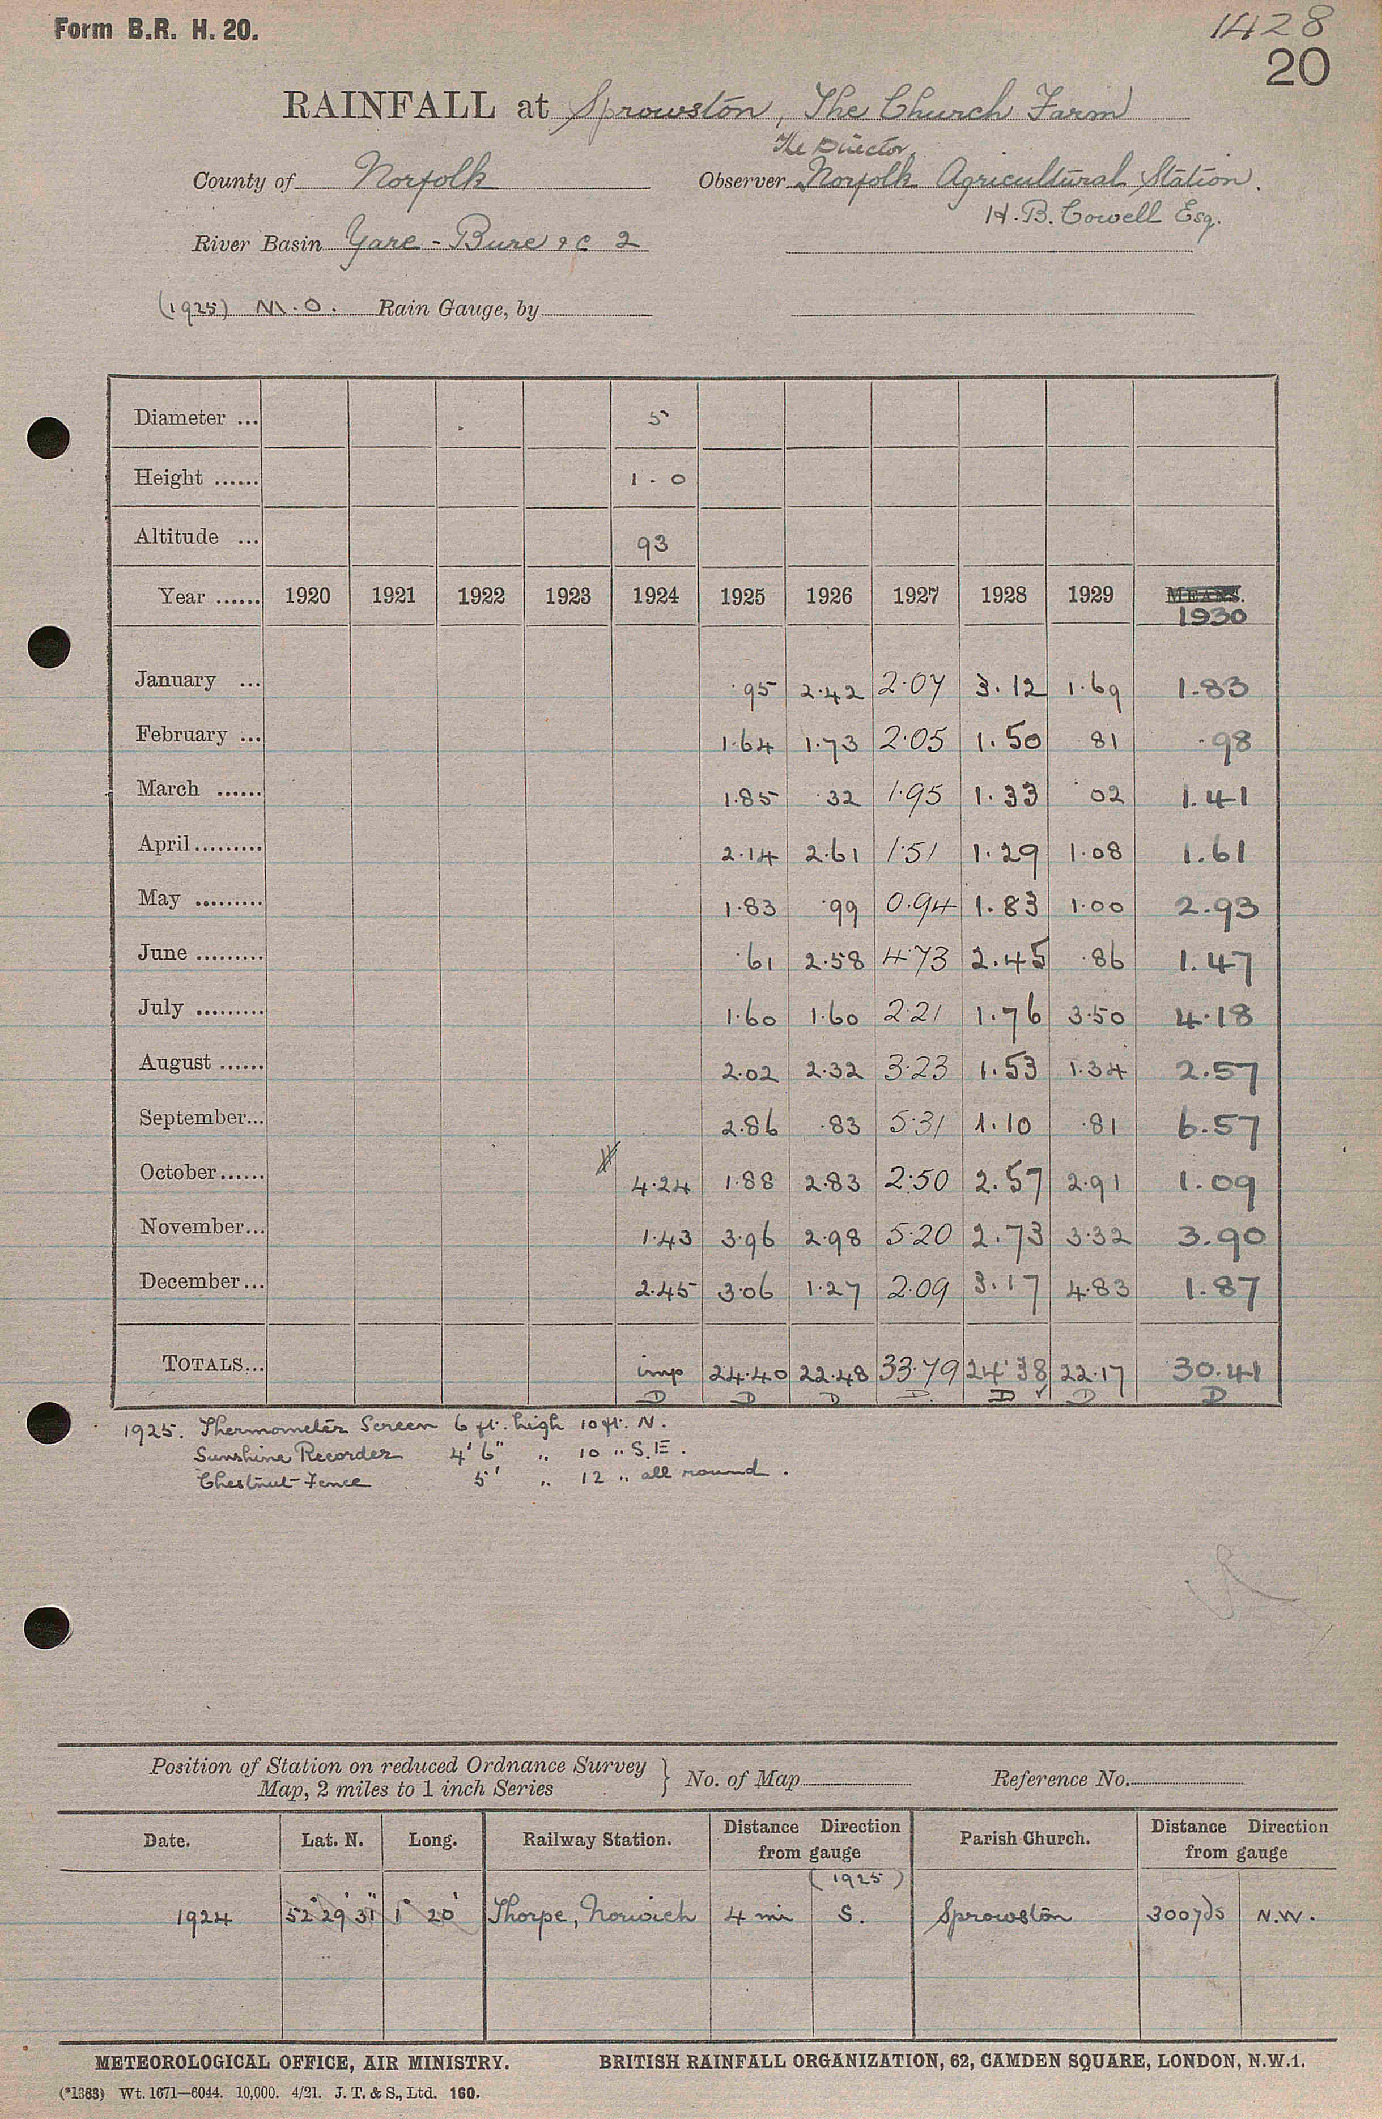 Form B.R. H. 20.
1428
20
RAINFALL at Sprowston, The Church Farm
The Director,
County of Norfolk Observer Norfolk Agricultural Station.
H. B. Cowell Esq.
River Basin Yare - Bure &c 2
(1925) M.O. Rain Gauge, by
Diameter ... 5
Height ...... 1 - 0
Altitude ... 93
Year ...... 1920 1921 1922 1923 1924 1925 1926 1927 1928 1929 MEANS. 1930
January ... ·95 2·42 2·07 3.12 1·69 1.83
February ... 1·64 1·73 2·05 1.50 81 .98
March ...... 1·85 ·32 1·95 1.33 ·02 1.41
April ......... 2·14 2·61 1·51 1.29 1·08 1.61
May ......... 1·83 ·99 0·94 1.83 1·00 2.93
June ......... ·61 2·58 4·73 2.45 ·86 1.47
July ......... 1·60 1·60 2·21 1.76 3·50 4.18
August ...... 2·02 2·32 3·23 1.53 1·34 2.57
September... 2·86 ·83 5·31 1.10 ·81 6.57
October...... 4·24 1·88 2·83 2·50 2.57 2·91 1.09
November... 1·43 3·96 2·98 5·20 2.73 3·32 3.90
December... 2·45 3·06 1·27 2·09 3.17 4·83 1.87
TOTALS... imp 24·40 22·48 33·79 24·38 22·17 30.41
D D D D D ✓ D D
1925. Thermometer Screen 6 ft. high 10 ft. N.
Sunshine Recorder 4' 6" ,, 10 ,, S.E.
Chestnut Fence 5' ,, 12 ,, all round.
Position of Station on reduced Ordnance Survey
Map, 2 miles to 1 inch Series } No. of Map Reference No.
Date. Lat. N. Long. Railway Station. Distance Direction from gauge Parish Church. Distance Direction from gauge
(1925)
1924 52° 29' 31" 1° 20' Thorpe, Norwich 4 mi S. Sprowston 300 yds N.W.
METEOROLOGICAL OFFICE, AIR MINISTRY. BRITISH RAINFALL ORGANIZATION, 62, CAMDEN SQUARE, LONDON, N.W.1.
(*1363) Wt. 1671—6044. 10,000. 4/21. J. T. & S., Ltd. 160.